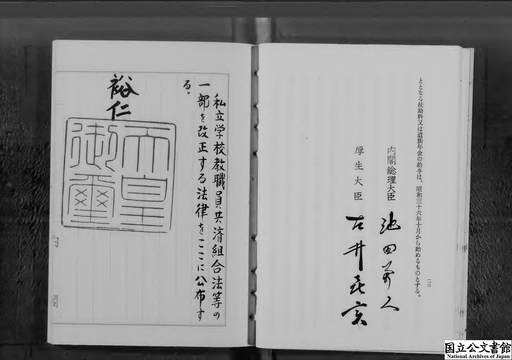 ととなる扶助料又は遺族年金の給与は、昭和三十六年十月から始めるものとする。
二〇
内閣総理大臣
池田勇人
厚生大臣
古井喜実
私立学校教職員共済組合法等の
一部を改正する法律をここに公布す
る。
裕仁
天皇
御璽
国立公文書館
National Archives of Japan